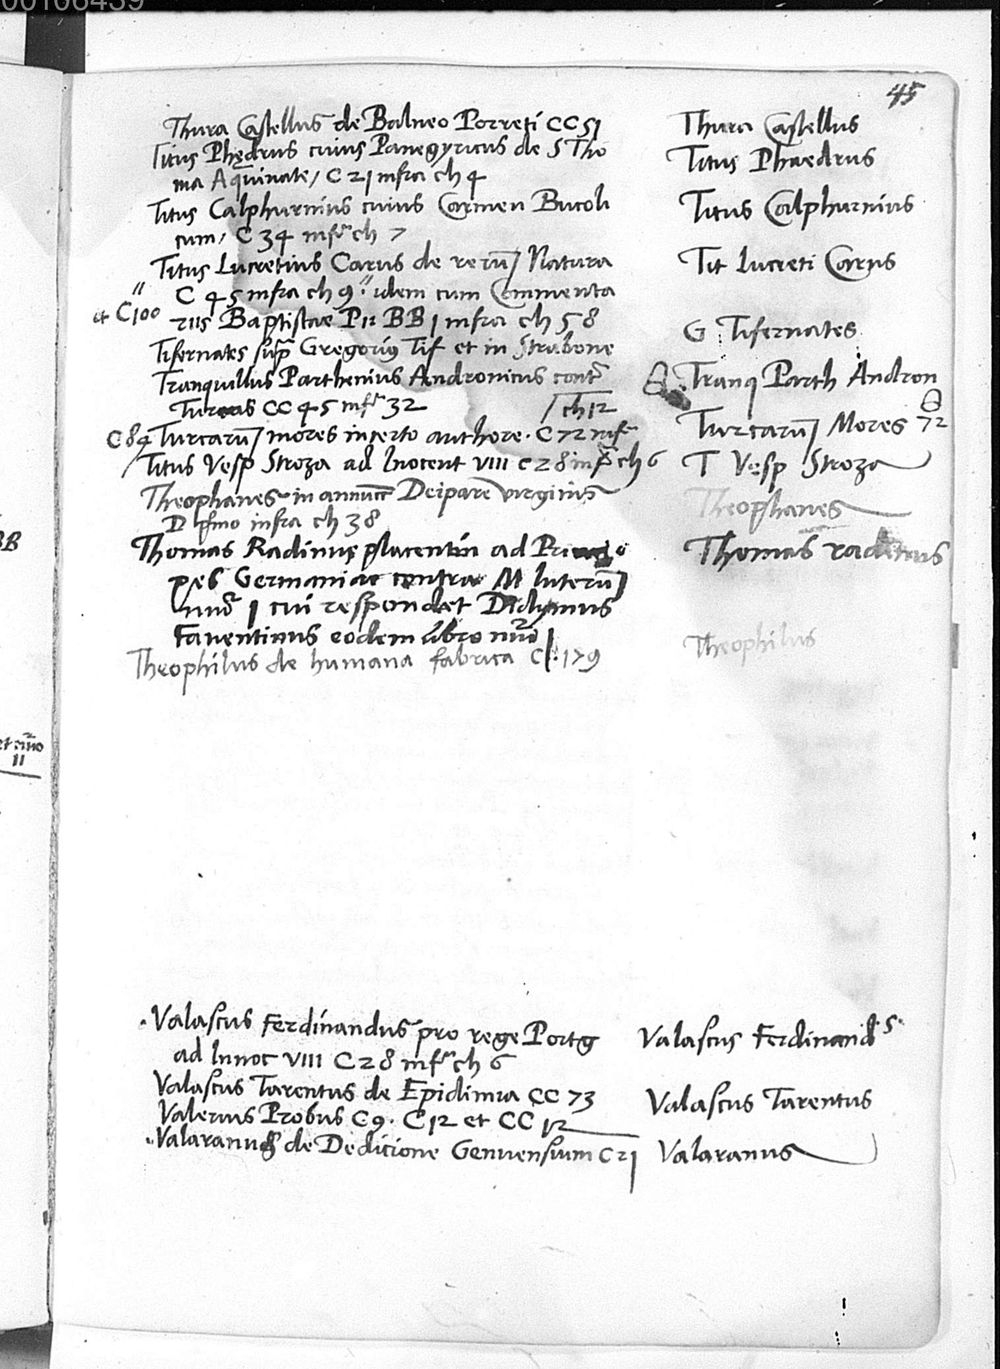 00106439
45
Thura Castellus de Balneo Porreti CC 51 Thura Castellus
Titus Phędrus cuius Panegyricus de S Tho Titus Phaedrus
ma Aquinate, C 21 infra ch 4
Titus Calphurnius cuius Carmen Bucoli Titus Calphurnius
cum, C 34 infra ch 7
Titus Lucretius Carus de rerū Natura Tit Lucreti Carus
C 45 infra ch 9 " idem cum Commenta
" et C 100 riis Baptistae Pii BB 1 infra ch 58 G Tifernates
Tifernates supra Gregorius Tif et in Strabone
Tranquillus Parthenius Andronicus contra Tranq Parth Andron
Turcas CC 45 infra 32 ch 12
C 84 Turcarū mores incerto authore. C 72 infra Turcarū Mores 72
Titus Vesp Stroza ad Inocent VIII C 28 infra ch 6 T Vesp Stroza
Theophanes in annunc Deipare virginis Theophanes
D pmo infra ch 38
Thomas Radinus placentin ad Thomas radinus
pes Germaniae contra M luterū
nuo 1 cui respondet Didymus
Faventinus eodem libro nuo 1
Theophilus de humana fabrica C 179 Theophilus
et cino
II
BB
Valascus Ferdinandus pro rege Portg Valascus Ferdinands
ad Innoc VIII C 28 infra ch 6
Valascus Tarentus de Epidimia CC 73 Valascus Tarentus
Valerius Probus C 9. C 12 et CC 12
Valaranus de Dedicione Genuensium C 21 Valaranus